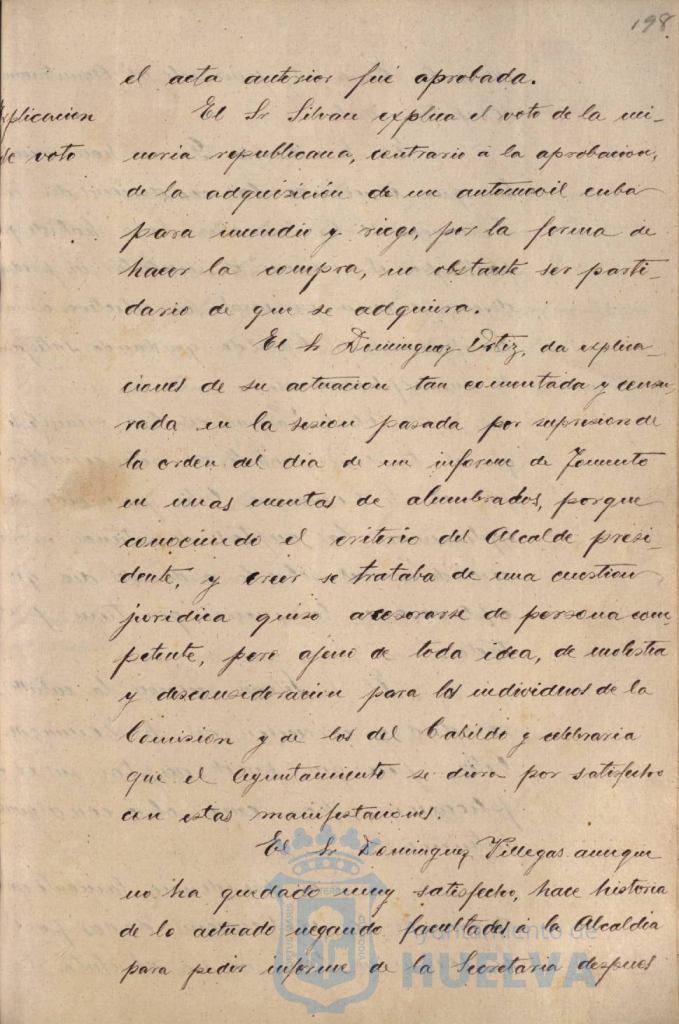 198
el acta anterior fué aprobada.
Explicacion
de voto
El Sr Silvan explica el voto de la mi-
noria republicana, contrario á la aprobacion,
de la adquisición de un automovil cuba
para incendio y riego, por la forma de
hacer la compra, no obstante ser parti-
dario de que se adquiera.
El Sr Dominguez Ortiz, da explica-
ciones de su actuacion tan comentada y censu-
rada en la sesion pasada por supresion de
la orden del dia de un informe de Fomento
en unas cuentas de alumbrados, porque
conociendo el criterio del Alcalde presi-
dente, y creer se trataba de una cuestion
juridica quiso asesorarse de persona com-
petente, pero ajeno de toda idea, de molestia
y desconsideracion para los individuos de la
Comision y de los del Cabildo y celebraria
que el Ayuntamiento se diera por satisfecho
con estas manifestaciones.
El Sr Dominguez Villegas aunque
no ha quedado muy satisfecho, hace historia
de lo actuado negando facultades á la Alcaldia
para pedir informe de la Secretaria despues
Ayuntamiento de
HUELVA